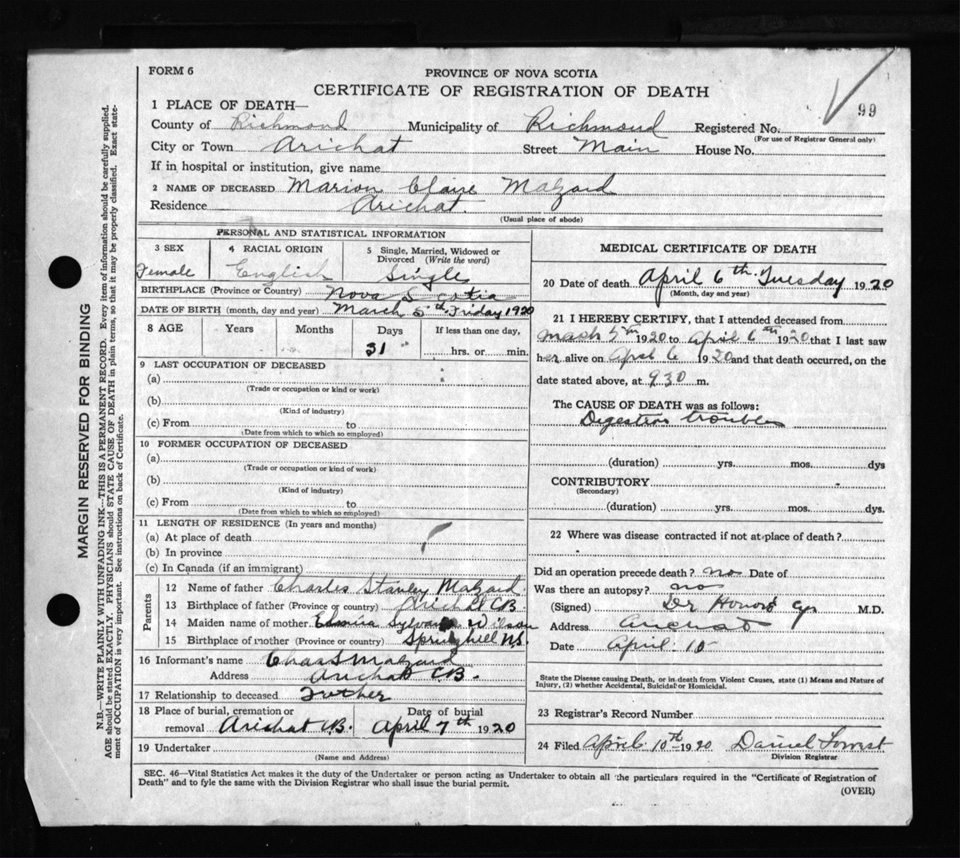 FORM 6
PROVINCE OF NOVA SCOTIA
CERTIFICATE OF REGISTRATION OF DEATH
99
1 PLACE OF DEATH—
County of Richmond Municipality of Richmond Registered No.
(For use of Registrar General only)
City or Town Arichat Street Main House No.
If in hospital or institution, give name
2 NAME OF DECEASED Marion Claire Malzard
Residence Arichat.
(Usual place of abode)
PERSONAL AND STATISTICAL INFORMATION
3 SEX 4 RACIAL ORIGIN 5 Single, Married, Widowed or Divorced (Write the word)
Female English Single
BIRTHPLACE (Province or Country) Nova Scotia
DATE OF BIRTH (month, day and year) March 5th Friday 1920
8 AGE Years Months Days If less than one day,
31 hrs. or min.
9 LAST OCCUPATION OF DECEASED
(a)
(Trade or occupation or kind or work)
(b)
(Kind of industry)
(c) From to
(Date from which to which so employed)
10 FORMER OCCUPATION OF DECEASED
(a)
(Trade or occupation or kind of work)
(b)
(Kind of industry)
(c) From to
(Date from which to which so employed)
11 LENGTH OF RESIDENCE (In years and months)
(a) At place of death
(b) In province
(c) In Canada (if an immigrant)
Parents
12 Name of father Charles Stanley Malzard
13 Birthplace of father (Province or country) Arichat CB.
14 Maiden name of mother Elmira Wilson
15 Birthplace of mother (Province or country) Springhill N.S.
16 Informant's name Chas S Malzard
Address Arichat CB.
17 Relationship to deceased Father
18 Place of burial, cremation or removal Arichat CB. Date of burial April 7th 1920
19 Undertaker
(Name and Address)
MEDICAL CERTIFICATE OF DEATH
20 Date of death April 6th Tuesday 1920
(Month, day and year)
21 I HEREBY CERTIFY, that I attended deceased from
Mach 5th 1920 to April 6th 1920 that I last saw
her alive on April 6 1920 and that death occurred, on the
date stated above, at 930 m.
The CAUSE OF DEATH was as follows:
Digestion troubles
(duration) yrs. mos. dys
CONTRIBUTORY
(Secondary)
(duration) yrs. mos. dys.
22 Where was disease contracted if not at place of death?
Did an operation precede death? no Date of
Was there an autopsy? no
(Signed) Dr M.D.
Address Arichat
Date April 10
State the Disease causing Death, or in death from Violent Causes, state (1) Means and Nature of
Injury, (2) whether Accidental, Suicidal or Homicidal.
23 Registrar's Record Number
24 Filed April 10th 1920 Daniel Forrest
Division Registrar
SEC. 46—Vital Statistics Act makes it the duty of the Undertaker or person acting as Undertaker to obtain all the particulars required in the "Certificate of Registration of
Death" and to fyle the same with the Division Registrar who shall issue the burial permit.
(OVER)
MARGIN RESERVED FOR BINDING
N.B.—WRITE PLAINLY WITH UNFADING INK—THIS IS A PERMANENT RECORD. Every item of information should be carefully supplied.
AGE should be stated EXACTLY. PHYSICIANS should STATE CAUSE OF DEATH in plain terms, so that it may be properly classified. Exact state-
ment of OCCUPATION is very important. See instructions on back of Certificate.